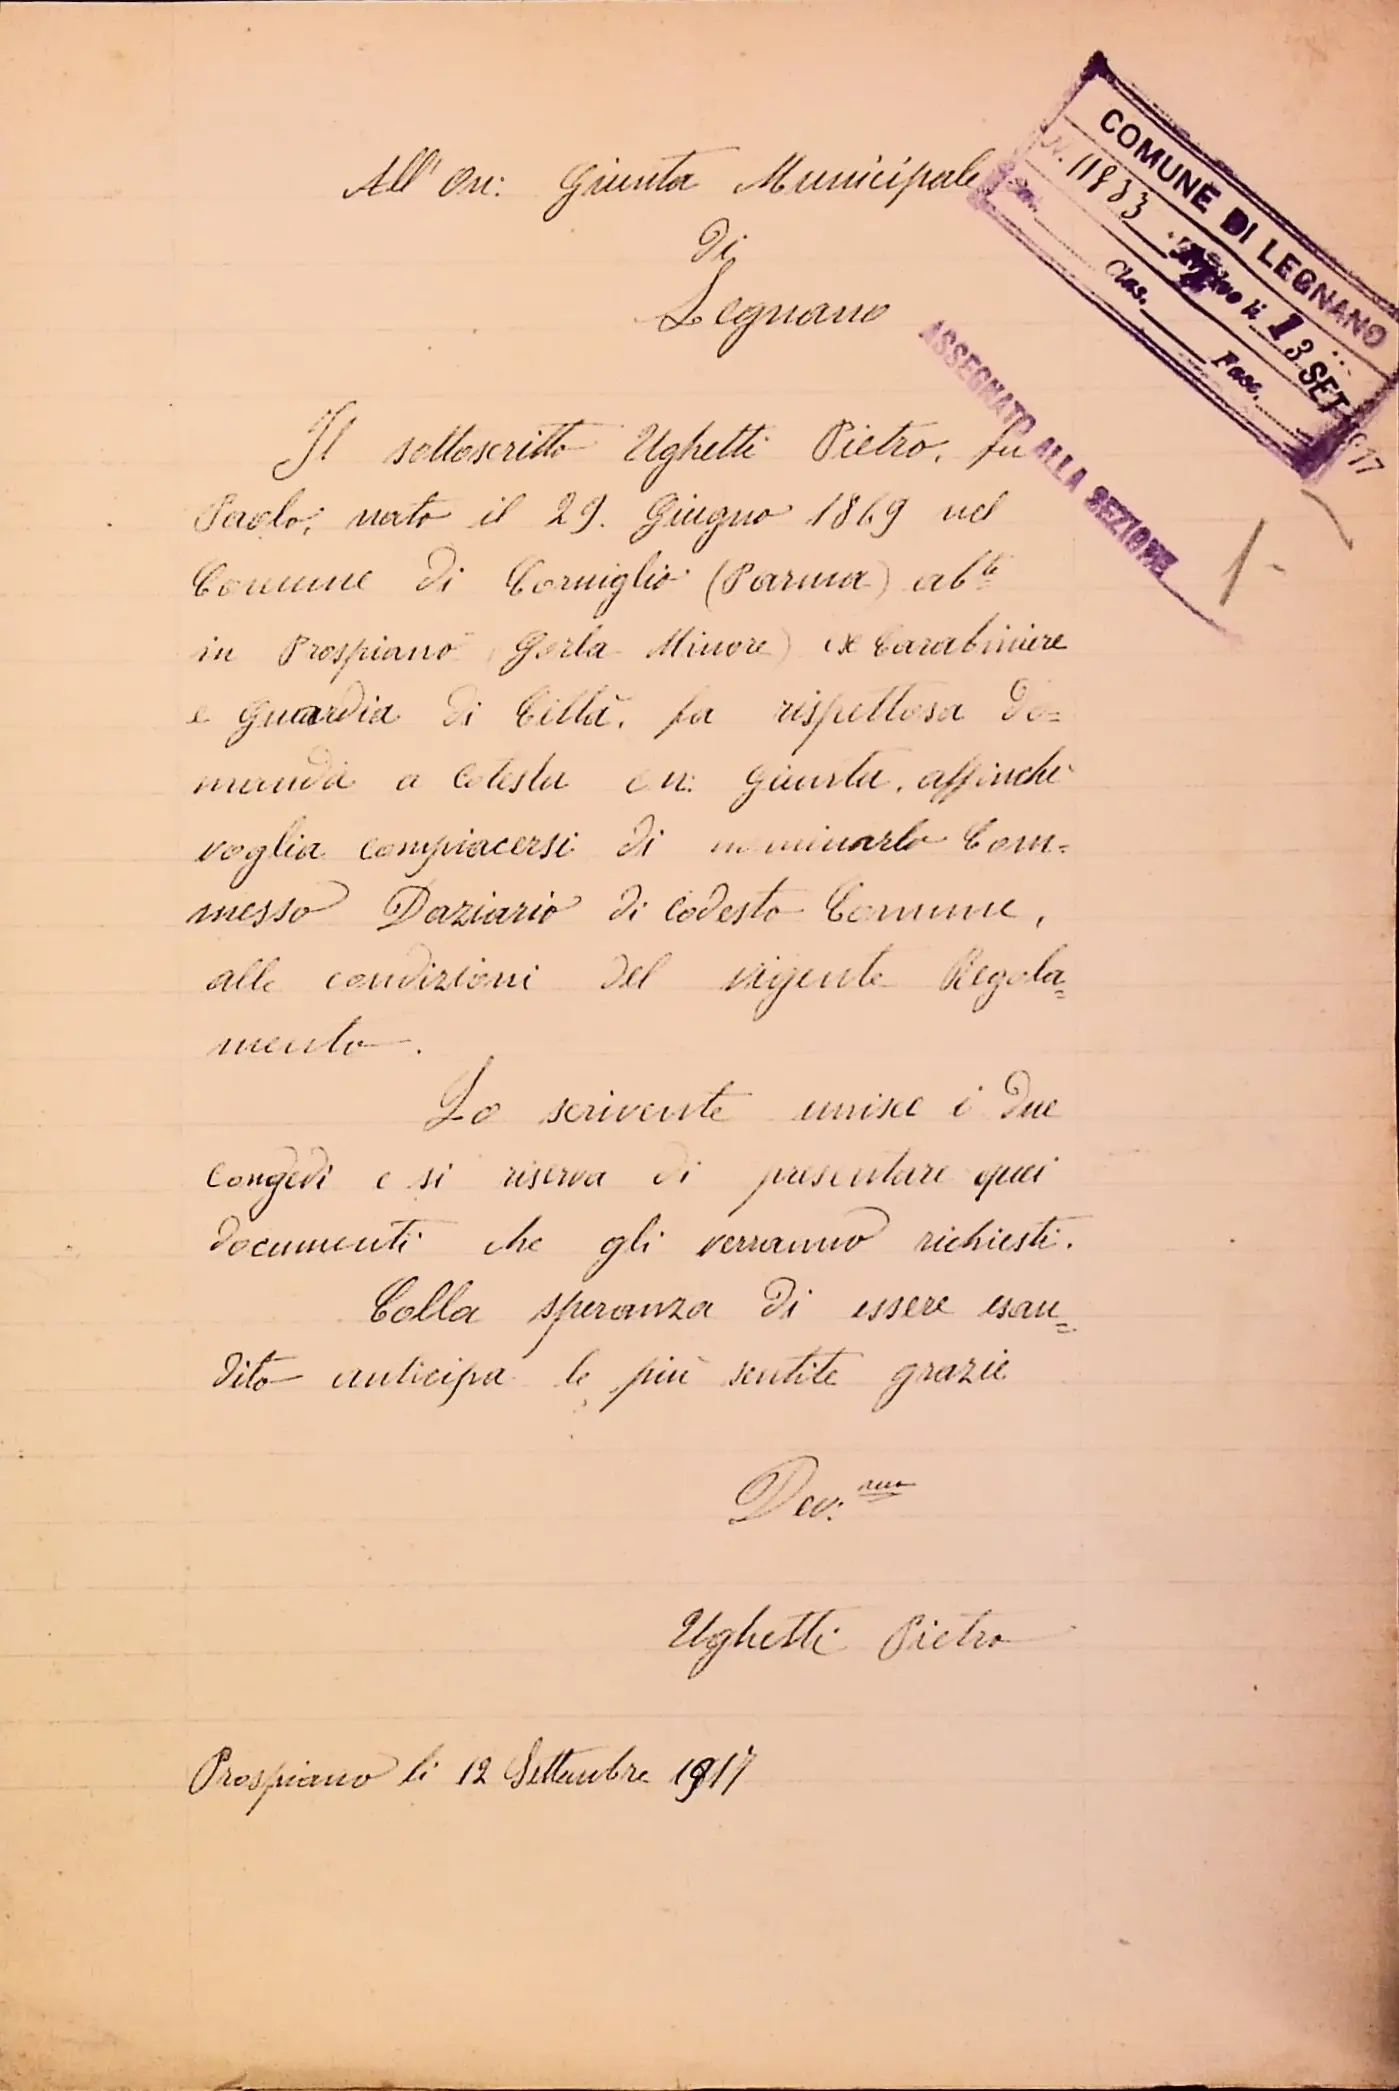 All' On: Giunta Municipale
di
Legnano
COMUNE DI LEGNANO
N. 11833
Arrivo li 13 SET 1917
Clas. Fasc.
ASSEGNATO ALLA SEZIONE 1
Il sottoscritto Ughetti Pietro, fu
Paolo, nato il 29. Giugno 1869 nel
Comune di Corniglio (Parma) ab.te
in Prospiano (Gorla Minore) ex Carabiniere
e Guardia di Città, fa rispettosa do=
manda a cotesta On: Giunta, affinchè
voglia compiacersi di nominarlo Com=
messo Daziario di codesto Comune,
alle condizioni del vigente Regola=
mento.
Lo scrivente unisce i due
congedi e si riserva di presentare quei
documenti che gli verranno richiesti.
Colla speranza di essere esau=
dito anticipa le più sentite grazie
Dev.mo
Ughetti Pietro
Prospiano li 12 Settembre 1917